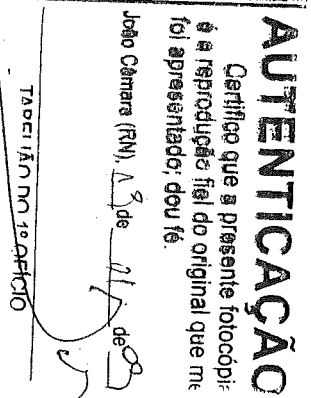 AUTENTICAÇÃO
Certifico que a presente fotocópi
é a reprodução fiel do original que me
foi apresentado; dou fé.
João Câmara (RN), de de
TABELIÃO DO 1º OFÍCIO